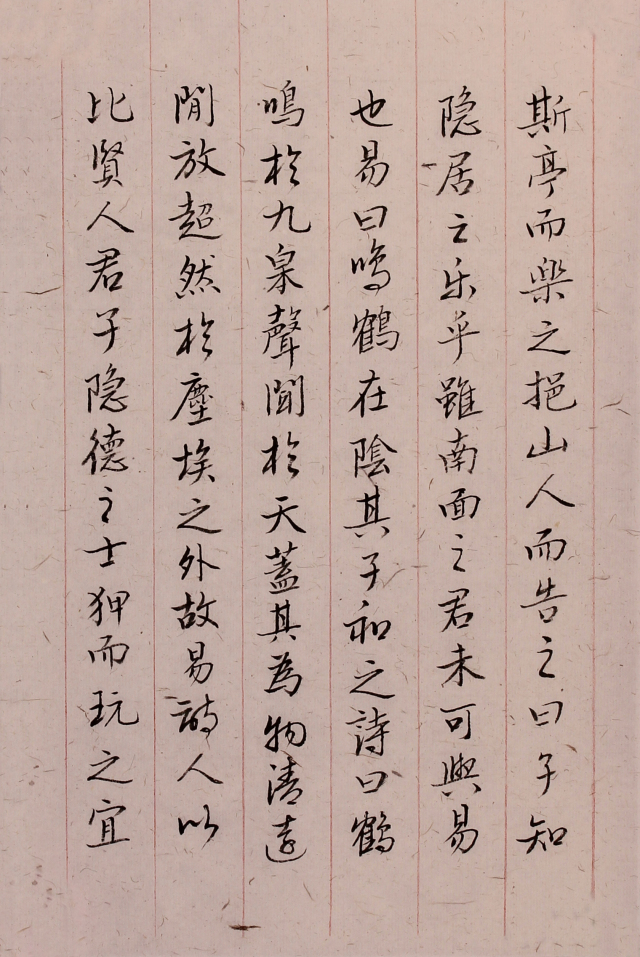 斯亭而樂之挹山人而告之曰子知
隐居之乐乎雖南面之君未可與易
也易曰鳴鶴在陰其子和之詩曰鶴
鳴於九皋聲聞於天蓋其為物清遠
閒放超然於塵埃之外故易詩人以
比賢人君子隐德之士狎而玩之宜